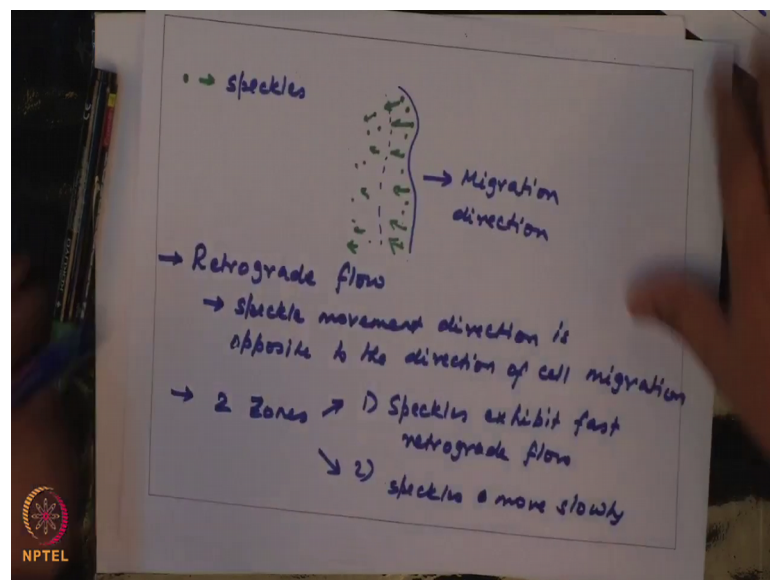 • → speckles
→ Migration
direction
→ Retrograde flow
→ speckle movement direction is
opposite to the direction of cell migration
→ 2 Zones ↗ 1) Speckles exhibit fast
retrograde flow
↘ 2) speckles move slowly
NPTEL